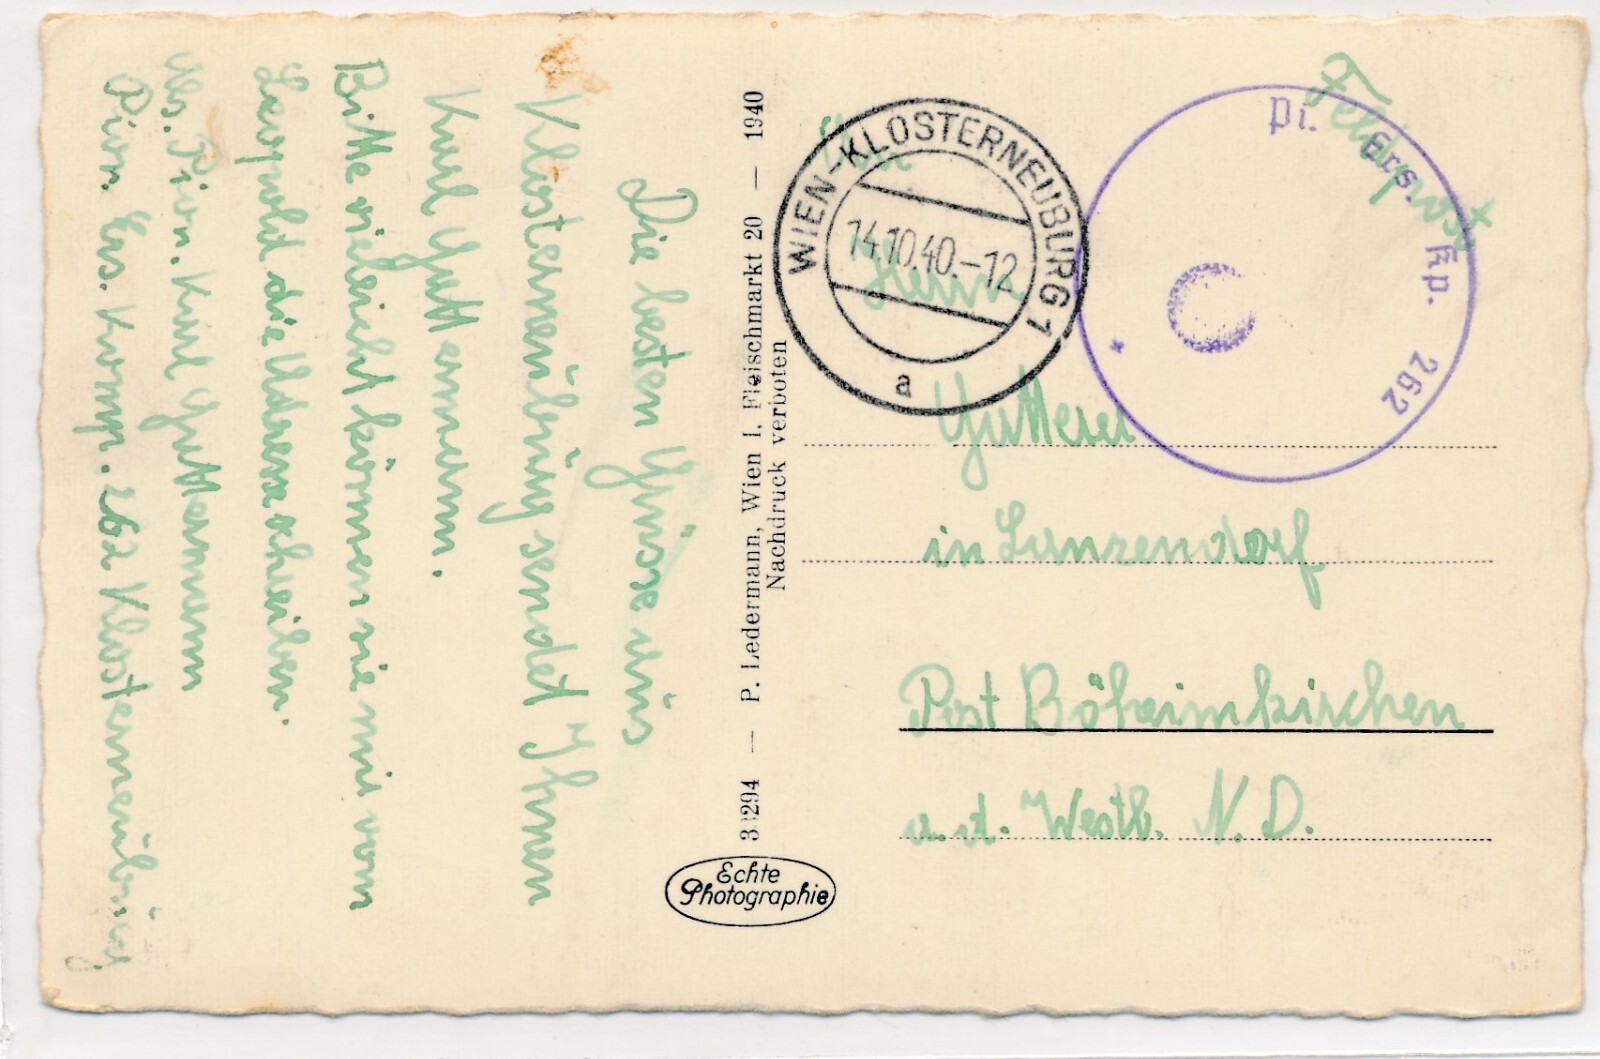 Die besten Grüsse aus
Klosterneuburg sendet Ihnen
Karl Guttermann.
Bitte vieleicht können sie mir vom
Leopold die Adresse schreiben.
Abs. Pion. Karl Guttermann
Pion. Ers. Komp. 262 Klosterneuburg
33294 — P. Ledermann, Wien I, Fleischmarkt 20 — 1940
Nachdruck verboten
Echte
Photographie
WIEN-KLOSTERNEUBURG 1
14.10.40.-12
a
Pi. Ers. Kp. 262
Feldpost
An
Herrn
in Lanzendorf
Post Böheimkirchen
a. d. Westb. N. D.